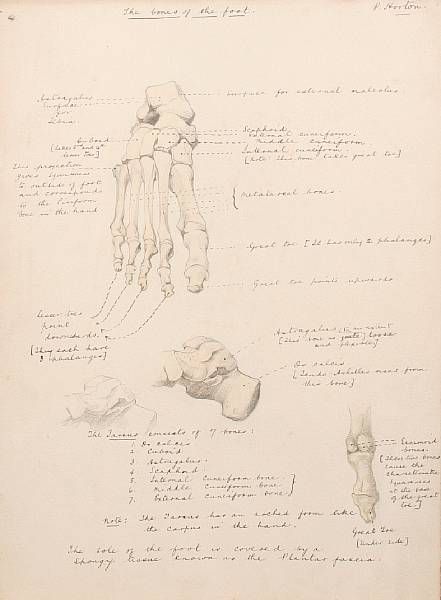 The bones of the foot.
P. Horton.
Astragalus
Surface
for
Tibia
Surface for external malleolus.
Scaphoid
External cuneiform.
Middle Cuneiform.
Internal cuneiform
[Note: This bone takes great toe]
Cuboid
[takes 4th and 5th
lesser toes]
This projection
gives squareness
to outside of foot
and corresponds
to the
bone in the hand
Metatarsal bones.
Great toe [It has only 2 phalanges]
Great toe points upwards
Lesser toes
point
downwards.
[They each have
3 phalanges]
Astragalus
[This bone is quite loose
and movable]
Os calcis
[Tendo Achilles rises from
this bone]
The Tarsus consists of 7 bones:
1. Os calcis
2. Cuboid
3. Astragalus.
4. Scaphoid.
5. Internal Cuneiform bone.
6. Middle Cuneiform bone.
7. External Cuneiform bone.
Note: The Tarsus has an arched form like
the carpus in the hand.
Sesamoid
bones.
[These two bones
cause the
characteristic
squareness
at the base
of the great
toe.]
Great Toe
[Under side]
The sole of the foot is covered by a
spongy tissue known as the Plantar fascia.